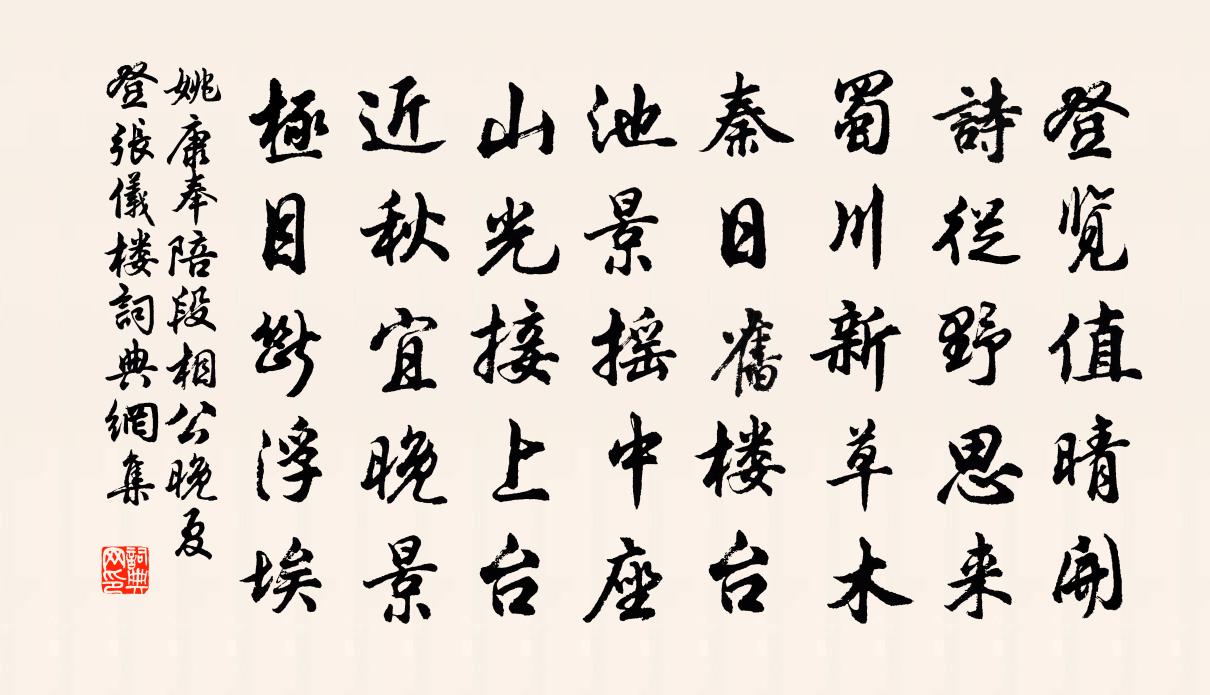 登览值晴開
詩從野思来
蜀川新草木
秦日舊楼台
池景摇中座
山光接上台
近秋宜晚景
極目断浮埃
姚康奉陪段相公晚夏
登張儀楼詞典網集
詞典网印